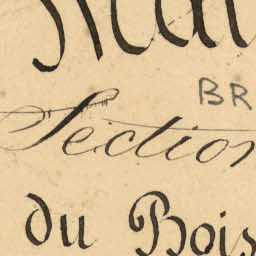 BR
Section
du Bois